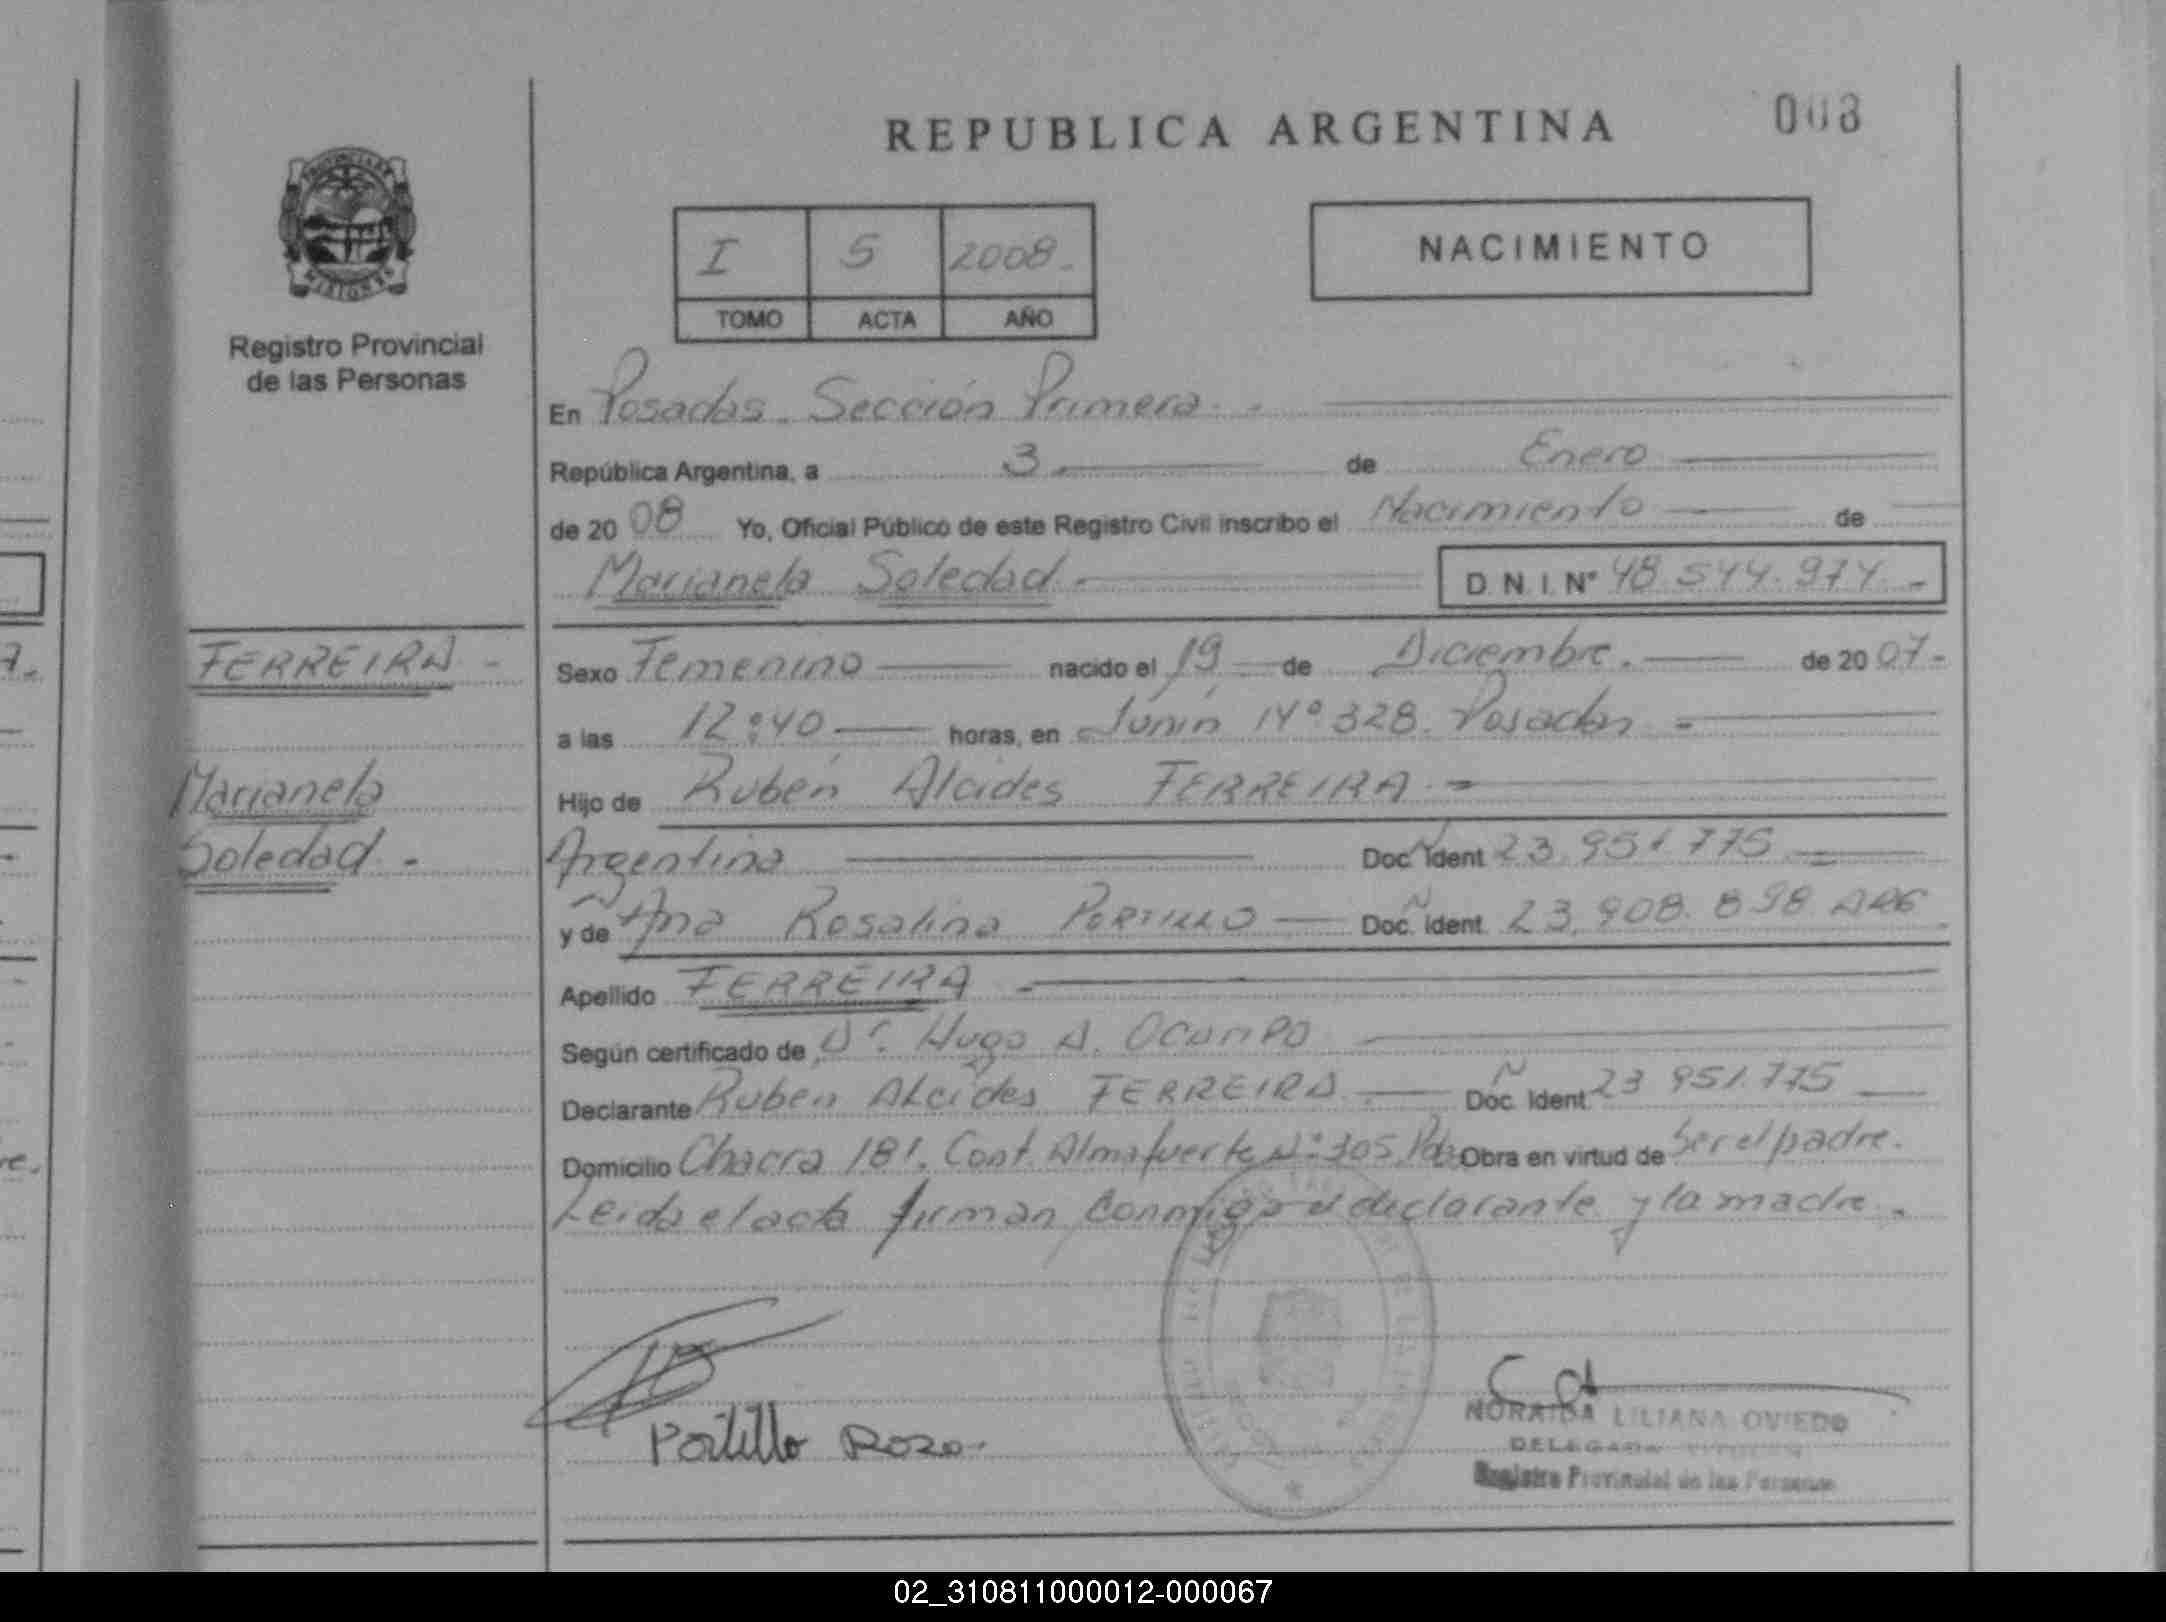 REPUBLICA ARGENTINA
003
PROVINCIA DE MISIONES
Registro Provincial
de las Personas
I 5 2008.-
TOMO ACTA AÑO
NACIMIENTO
En Posadas. Sección Primera.-
República Argentina, a 3 de Enero
de 20 08 Yo, Oficial Público de este Registro Civil inscribo el Nacimiento de
Marianela Soledad.- D.N.I. Nº 48.544.974.-
FERREIRA.-
Marianela
Soledad.-
Sexo Femenino nacido el 19 de Diciembre. de 20 07.-
a las 12:40 horas, en Junín Nº 328. Posadas.-
Hijo de Rubén Alcides FERREIRA.-
Argentina Doc. Ident 23.951.775
y de Ana Rosalina PORTILLO Doc. Ident. 23.908.898 ARG
Apellido FERREIRA.-
Según certificado de Dr. Hugo A. OCAMPO
Declarante Ruben Alcides FERREIRA Doc. Ident. 23 951.775
Domicilio Chacra 181. Cont. Almafuerte Nº 305. Pdas Obra en virtud de Ser el padre.
Leida el acta firman conmigo el declarante y la madre.-
Portillo Roza.
NORAIDA LILIANA OVIEDO
DELEGADA TITULAR
Registro Provincial de las Personas
02_310811000012-000067